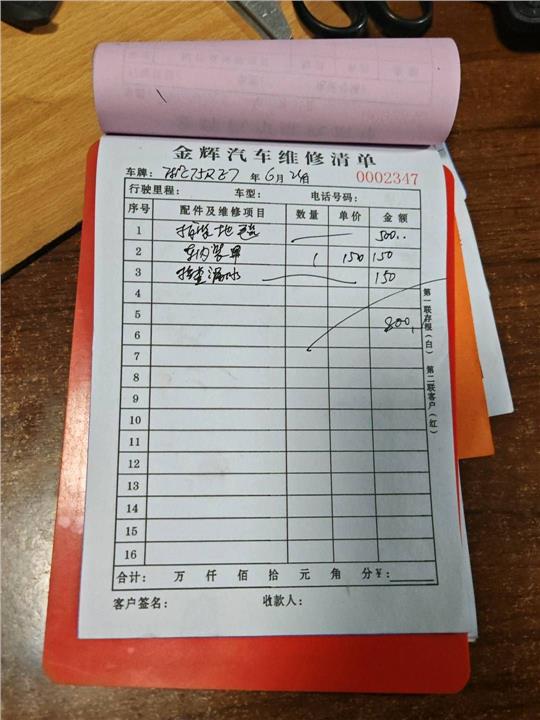 金辉汽车维修清单
车牌: 年 6 月 日 0002347
行驶里程: 车型: 电话号码:
序号 配件及维修项目 数量 单价 金额
1 拆装地毯 500..
2 车内 单 1 150 150
3 检查漏水 150
4
5 800,
6
7
8
9
10
11
12
13
14
15
16
合计: 万 仟 佰 拾 元 角 分 ¥:
客户签名: 收款人:
第一联存根(白) 第二联客户(红)